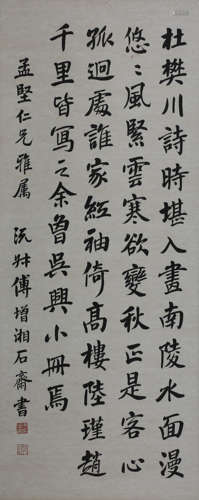 杜樊川詩時堪入畫南陵水面漫
悠〻風緊雲寒欲變秋正是客心
孤迴處誰家紅袖倚高樓陸瑾趙
千里皆寫之余魯吳興小冊焉
孟堅仁兄雅屬 沅叔傅增湘石齋書